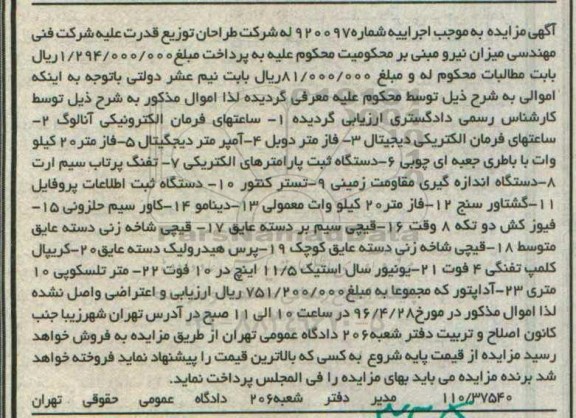 آگهی مزایده به موجب اجراییه شماره ۹۲۰۰۹۷ له شرکت طراحان توزیع قدرت علیه شرکت فنی
مهندسی میزان نیرو مبنی بر محکومیت محکوم علیه به پرداخت مبلغ ۱/۲۹۴/۰۰۰/۰۰۰ ریال
بابت مطالبات محکوم له و مبلغ ۸۱/۰۰۰/۰۰۰ ریال بابت نیم عشر دولتی باتوجه به اینکه
اموالی به شرح ذیل توسط محکوم علیه معرفی گردیده لذا اموال مذکور به شرح ذیل توسط
کارشناس رسمی دادگستری ارزیابی گردیده ۱- ساعتهای فرمان الکترونیکی آنالوگ ۲-
ساعتهای فرمان الکتریکی دیجیتال ۳- فاز متر دوبل ۴- آمپر متر دیجیگیتال ۵- فاز متر ۲۰ کیلو
وات با باطری جعبه ای چوبی ۶- دستگاه ثبت پارامترهای الکتریکی ۷- تفنگ پرتاب سیم ارت
۸- دستگاه اندازه گیری مقاومت زمینی ۹- تستر کنتور ۱۰- دستگاه ثبت اطلاعات پروفایل
۱۱- گشتاور سنج ۱۲- فاز متر ۲۰ کیلو وات معمولی ۱۳- دینامو ۱۴- کاور سیم حلزونی ۱۵-
فیوز کش دو تکه ۸ وقت ۱۶- قیچی سیم بر دسته عایق ۱۷- قیچی شاخه زنی دسته عایق
متوسط ۱۸- قیچی شاخه زنی دسته عایق کوچک ۱۹- پرس هیدرولیک دسته عایق ۲۰- کریپال
کلمپ تفنگی ۴ فوت ۲۱- یونیور سال استیک ۱۱/۵ اینچ در ۱۰ فوت ۲۲- متر تلسکوپی ۱۰
متری ۲۳- آداپتور که مجموعا به مبلغ ۷۵۱/۲۰۰/۰۰۰ ریال ارزیابی و اعتراضی واصل نشده
لذا اموال مذکور در مورخ ۹۶/۴/۲۸ در ساعت ۱۰ الی ۱۱ صبح در آدرس تهران شهرزیبا جنب
کانون اصلاح و تربیت دفتر شعبه ۲۰۶ دادگاه عمومی تهران از طریق مزایده به فروش خواهد
رسید مزایده از قیمت پایه شروع به کسی که بالاترین قیمت را پیشنهاد نماید فروخته خواهد
شد برنده مزایده می باید بهای مزایده را فی المجلس پرداخت نماید.
۱۱۰/۳۷۵۴۰ مدیر دفتر شعبه ۲۰۶ دادگاه عمومی حقوقی تهران